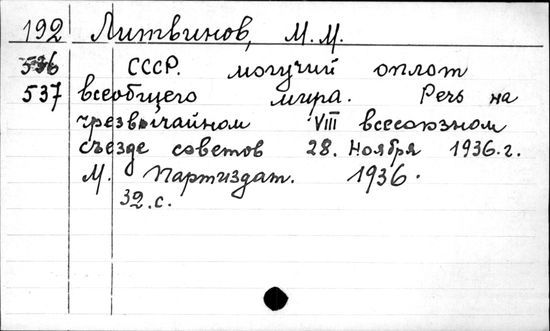 192 Литвинов, М.М.
536 СССР. могучий оплот
537 всеобщего мира. Речь на
чрезвычайном VIII всесоюзном
съезде советов 28. Ноября 1936.г.
М. Партиздат. 1936.
32.с.